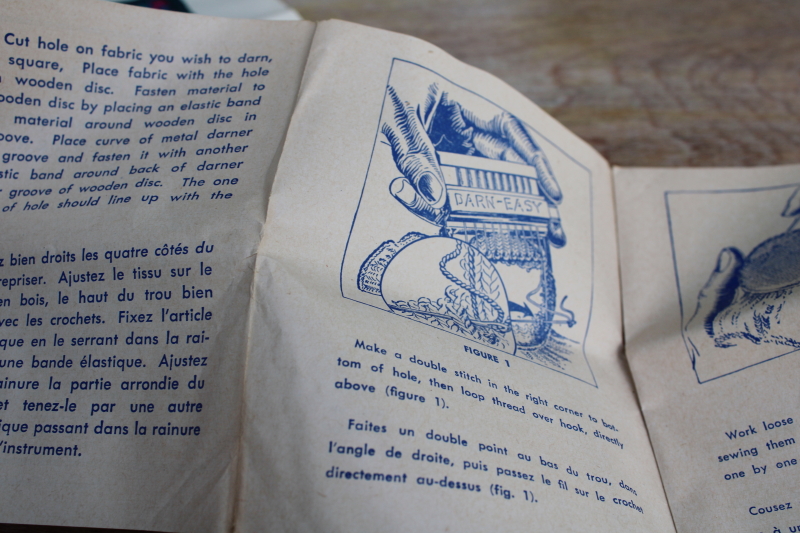 Cut hole on fabric you wish to darn,
square, Place fabric with the hole
wooden disc. Fasten material to
ooden disc by placing an elastic band
material around wooden disc in
oove. Place curve of metal darner
groove and fasten it with another
stic band around back of darner
groove of wooden disc. The one
of hole should line up with the
z bien droits les quatre côtés du
repriser. Ajustez le tissu sur le
en bois, le haut du trou bien
vec les crochets. Fixez l'article
que en le serrant dans la rai-
une bande élastique. Ajustez
ainure la partie arrondie du
et tenez-le par une autre
ique passant dans la rainure
'instrument.
DARN-EASY
FIGURE 1
Make a double stitch in the right corner to bot-
tom of hole, then loop thread over hook, directly
above (figure 1).
Faites un double point au bas du trou, dans
l'angle de droite, puis passez le fil sur le crochet
directement au-dessus (fig. 1).
Work loose
sewing them
one by one
Cousez
à un